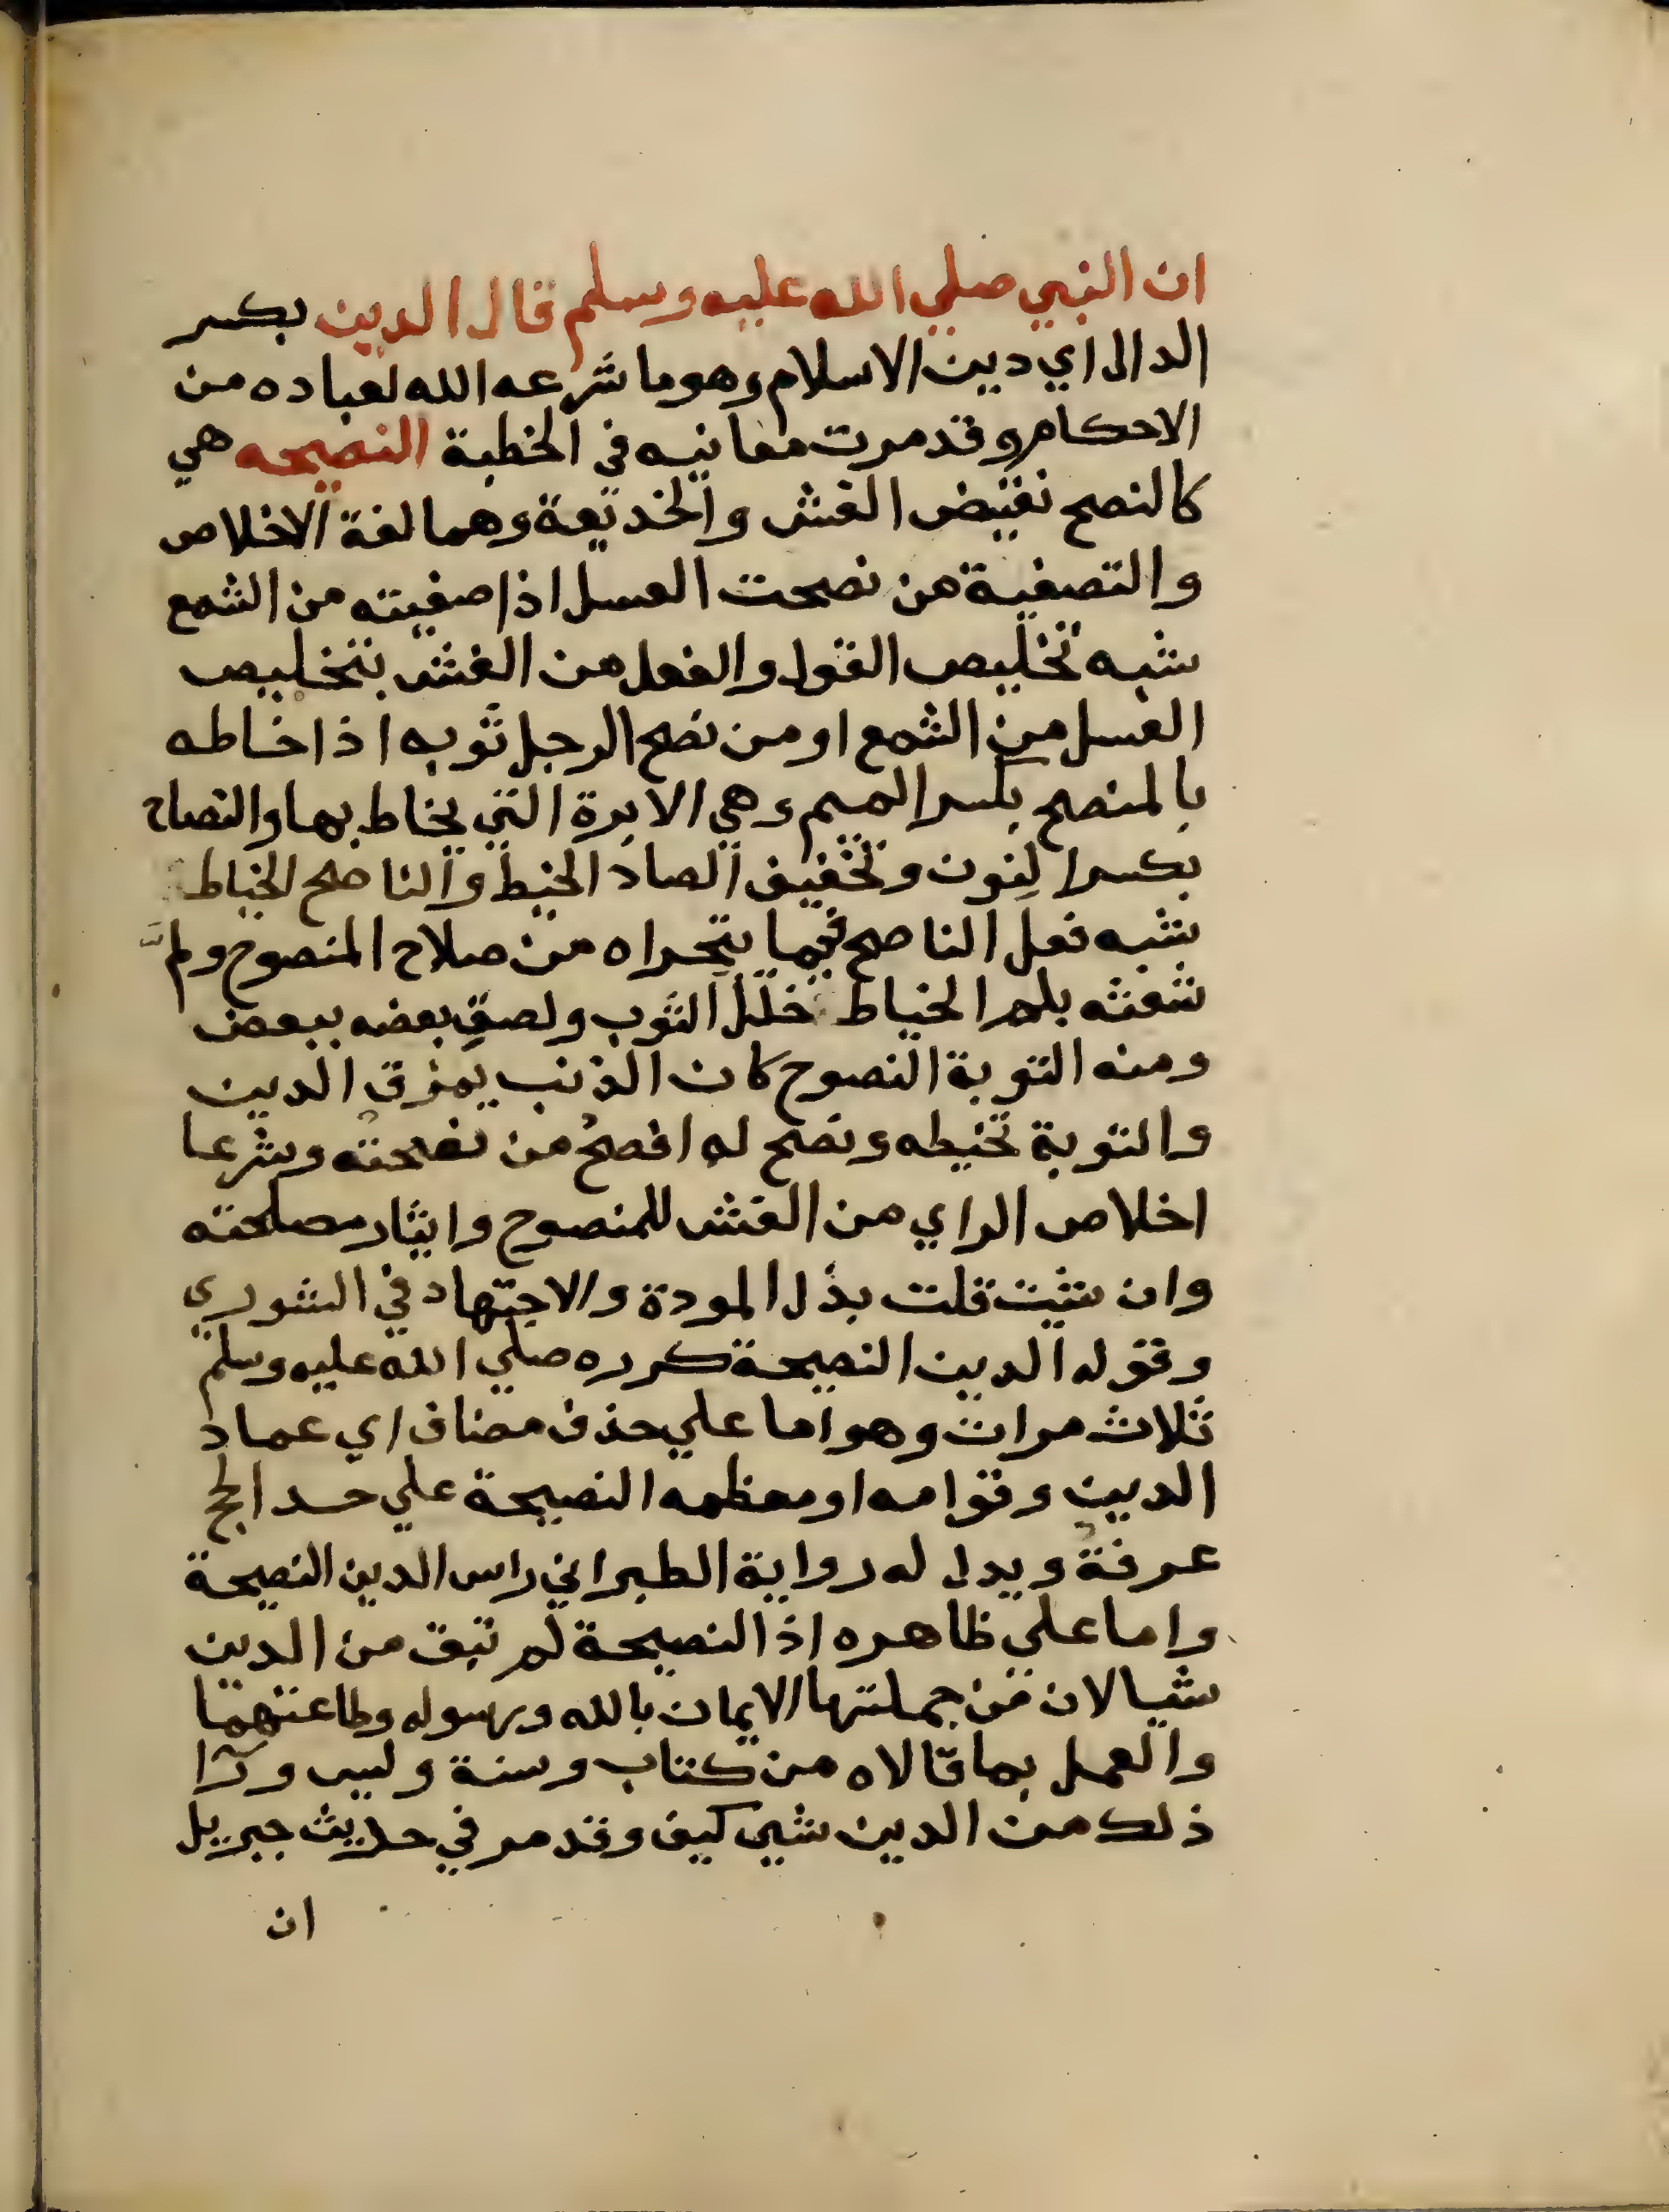 ان النبي صلي الله عليه وسلم قال الدين بكسر
الدال اي دين الاسلام وهو ما شرعه الله لعباده من
الاحكام وقد مرت معانيه في الخطبة النصيحه هي
كالنصح نقيض الغش والخديعة وهما لغة الاخلاص
والتصفية من نصحت العسل اذا صفيته من الشمع
شبه تخليص القول والفعل من الغش بتخليص
العسل من الشمع او من نصح الرجل ثوبه اذا خاطه
بالمنصح بكسر الميم وهي الابرة التي يخاط بها والنصاح
بكسر النون وتخفيف الصاد الخيط والناصح الخياط
شبه فعل الناصح فيما يتحراه من صلاح المنصوح ولمّ
شعثه بلم الخياط خلل الثوب ولصق بعضه ببعض
ومنه التوبة النصوح كان الذنب يمزق الدين
والتوبة تخيطه ونصح له افصح من نصحته وشرعا
اخلاص الراي من الغش للمنصوح وايثار مصلحته
وان شيت قلت بذل المودة والاجتهاد في الشوري
وقوله الدين النصيحة كرره صلي الله عليه وسلم
ثلاث مرات وهو اما علي حذف مضاف اي عماد
الدين وقوامه او معظمه النصيحة علي حد الحج
عرفة ويدل له رواية الطبراني راس الدين النصيحة
واما علي ظاهره اذ النصيحة لم تبق من الدين
شيا لان من جملتها الايمان بالله ورسوله وطاعتهما
والعمل بما قالاه من كتاب وسنة وليس ورآ
ذلك من الدين شي كيف وقد مر في حديث جبريل
ان